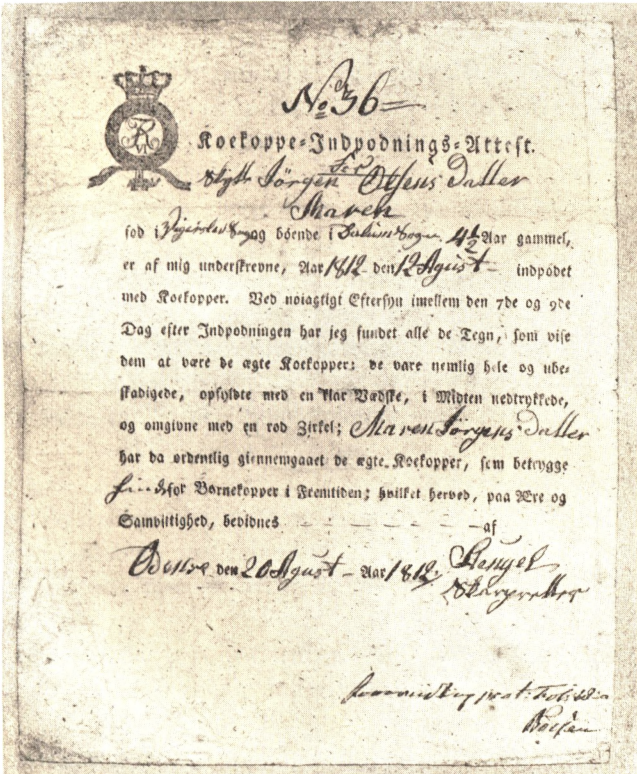 No 36
Koekoppe-Indpodnings-Attest.
Jörgen Olsens Datter
Maren
fød i og boende i 4½ Aar gammel,
er af mig underskrevne, Aar 1812 den 12 Agust indpodet
med Koekopper. Ved nøiagtigt Eftersyn imellem den 7de og 9de
Dag efter Indpodningen har jeg fundet alle de Tegn, som vise
dem at være de ægte Koekopper; de vare nemlig hele og ube-
skadigede, opfyldte med en klar Vædske, i Midten nedtrykkede,
og omgivne med en rød Zirkel; Maren Jörgens Datter
har da ordentlig giennemgaaet de ægte Koekopper, som betrygge
hende for Børnekopper i Fremtiden; hvilket herved, paa Ære og
Samvittighed, bevidnes - - - - - - af
Odense den 20 Agust - Aar 1812. Stengel
Skarpretter
Boisen